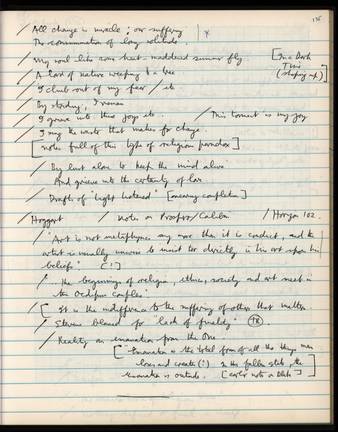 135
/ All change is miracle; our suffering
The consummation of long solitude.
/ My soul like some heat-maddened summer fly
[In a Dark Time (shaping up)]
/ A lord of nature weeping to a tree
/ I climb out of my fear / etc
/ By standing, I remain
/ I grieve into this joy etc. / This torment is my joy
/ I sing the that makes for change.
[notes full of this type of religious paradox]
/ By lust alone to keep the mind alive
And grieve into the certainty of love.
/ Drafts of "Light Listened" [nearing completion]
/ Hoggart / Notes on Prospero/Caliban / Horizon 102.
/ "Art is not metaphysics any more than it is conduct, and the
artist is usually unwise to insist too directly in his art upon his
beliefs" (!)
/ ...the beginnings of religion, ethics, society and art meet in
the Oedipus complex"
/ [ It is the indifference to the suffering of others that matters.
/ Stevens blamed for "lack of finality" TR
/ Reality an emanation from the One
["Emanation is the total form of all the things man
loves and creates (!) In the fallen state, the
emanation is outside. [earlier note on Blake]]